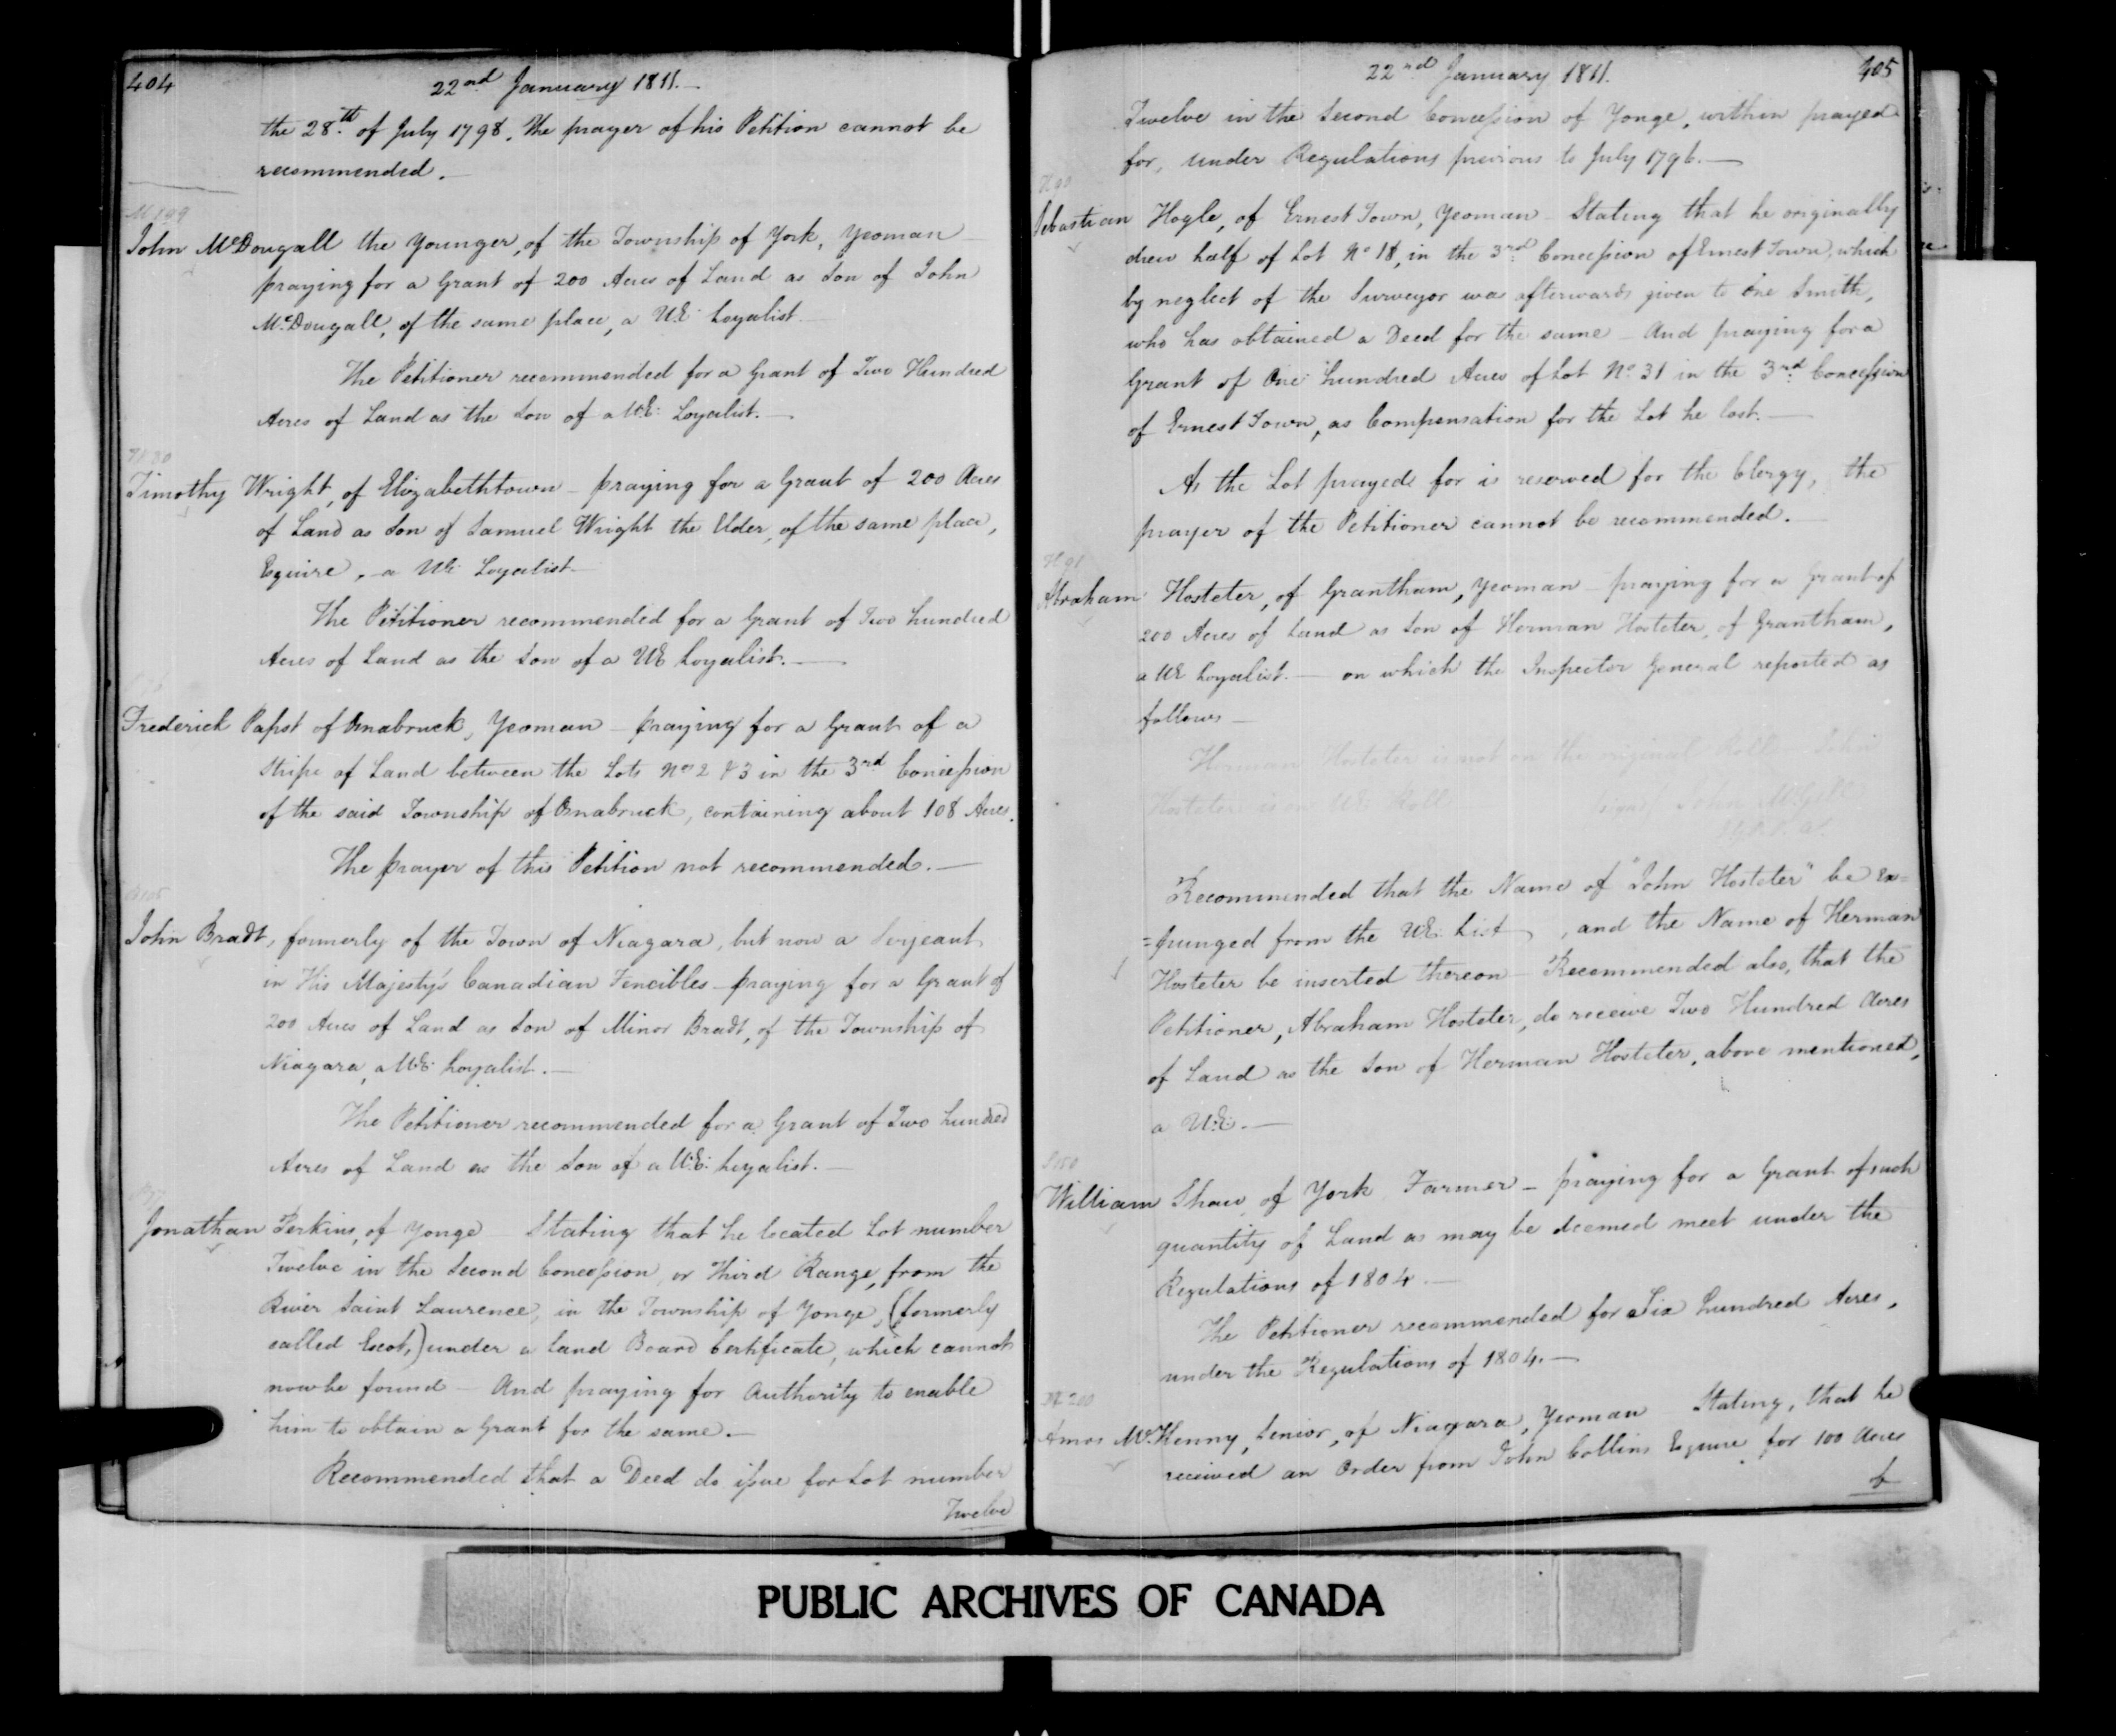 404
22nd January 1811.
the 28th of July 1798. The prayer of his Petition cannot be
recommended.
M 199
John McDougall the Younger, of the Township of York, Yeoman
praying for a Grant of 200 Acres of Land as Son of John
McDougall, of the same place, a UE Loyalist.
The Petitioner recommended for a Grant of Two Hundred
Acres of Land as the Son of a UE: Loyalist.
Timothy Wright, of Elizabethtown – praying for a Grant of 200 Acres
of Land as Son of Samuel Wright the Elder, of the same place,
Equire, – a UE Loyalist
The Petitioner recommended for a Grant of Two hundred
Acres of Land as the Son of a UE Loyalist.
Frederick Papst of Osnabruck, Yeoman – praying for a Grant of a
Stripe of Land between the Lots No 2 & 3 in the 3rd Concession
of the said Township of Osnabruck, containing about 108 Acres.
The prayer of this Petition not recommended.
John Bradt, formerly of the Town of Niagara, but now a Serjeant
in His Majesty's Canadian Fencibles – praying for a Grant of
200 Acres of Land as Son of Minor Bradt, of the Township of
Niagara, a UE: Loyalist.
The Petitioner recommended for a Grant of Two hundred
Acres of Land as the Son of a U:E: Loyalist.
Jonathan Perkins, of Yonge Stating that he located Lot number
Twelve in the Second Concession, or Third Range, from the
River Saint Laurence, in the Township of Yonge, (formerly
called Escot,) under a Land Board Certificate, which cannot
now be found – And praying for Authority to enable
him to obtain a Grant for the same.
Recommended that a Deed do issue for Lot number
Twelve
22nd January 1811.
405
Twelve in the Second Concession of Yonge, within prayed
for, under Regulations previous to July 1796.
H 90
Sebastian Hogle, of Ernest Town, Yeoman – Stating that he originally
drew half of Lot No 18, in the 3rd Concession of Ernest Town, which
by neglect of the Surveyor was afterwards given to One Smith,
who has obtained a Deed for the same – And praying for a
Grant of One hundred Acres of Lot No. 31 in the 3rd Concession
of Ernest Town, as Compensation for the Lot he lost.
As the Lot prayed for is reserved for the Clergy, the
prayer of the Petitioner cannot be recommended.
H 91
Abraham Hosteter, of Grantham, Yeoman – praying for a Grant of
200 Acres of Land as Son of Herman Hosteter, of Grantham,
a UE Loyalist. – on which the Inspector General reported as
follows –
Herman Hosteter is not on the original Roll John
Hosteter is on UE Roll signed John McGill
Recommended that the Name of "John Hosteter" be ex=
=punged from the UE: List, and the Name of Herman
Hosteter be inserted thereon – Recommended also, that the
Petitioner, Abraham Hosteter, do receive Two Hundred Acres
of Land as the Son of Herman Hosteter, above mentioned,
a U:E:
William Shaw of York Farmer – praying for a Grant of such
quantity of Land as may be deemed meet under the
Regulations of 1804
The Petitioner recommended for Six hundred Acres,
under the Regulations of 1804.
Amos McKenny, Senior, of Niagara, Yeoman Stating, that he
received an Order from John Collins Equire for 100 Acres
PUBLIC ARCHIVES OF CANADA